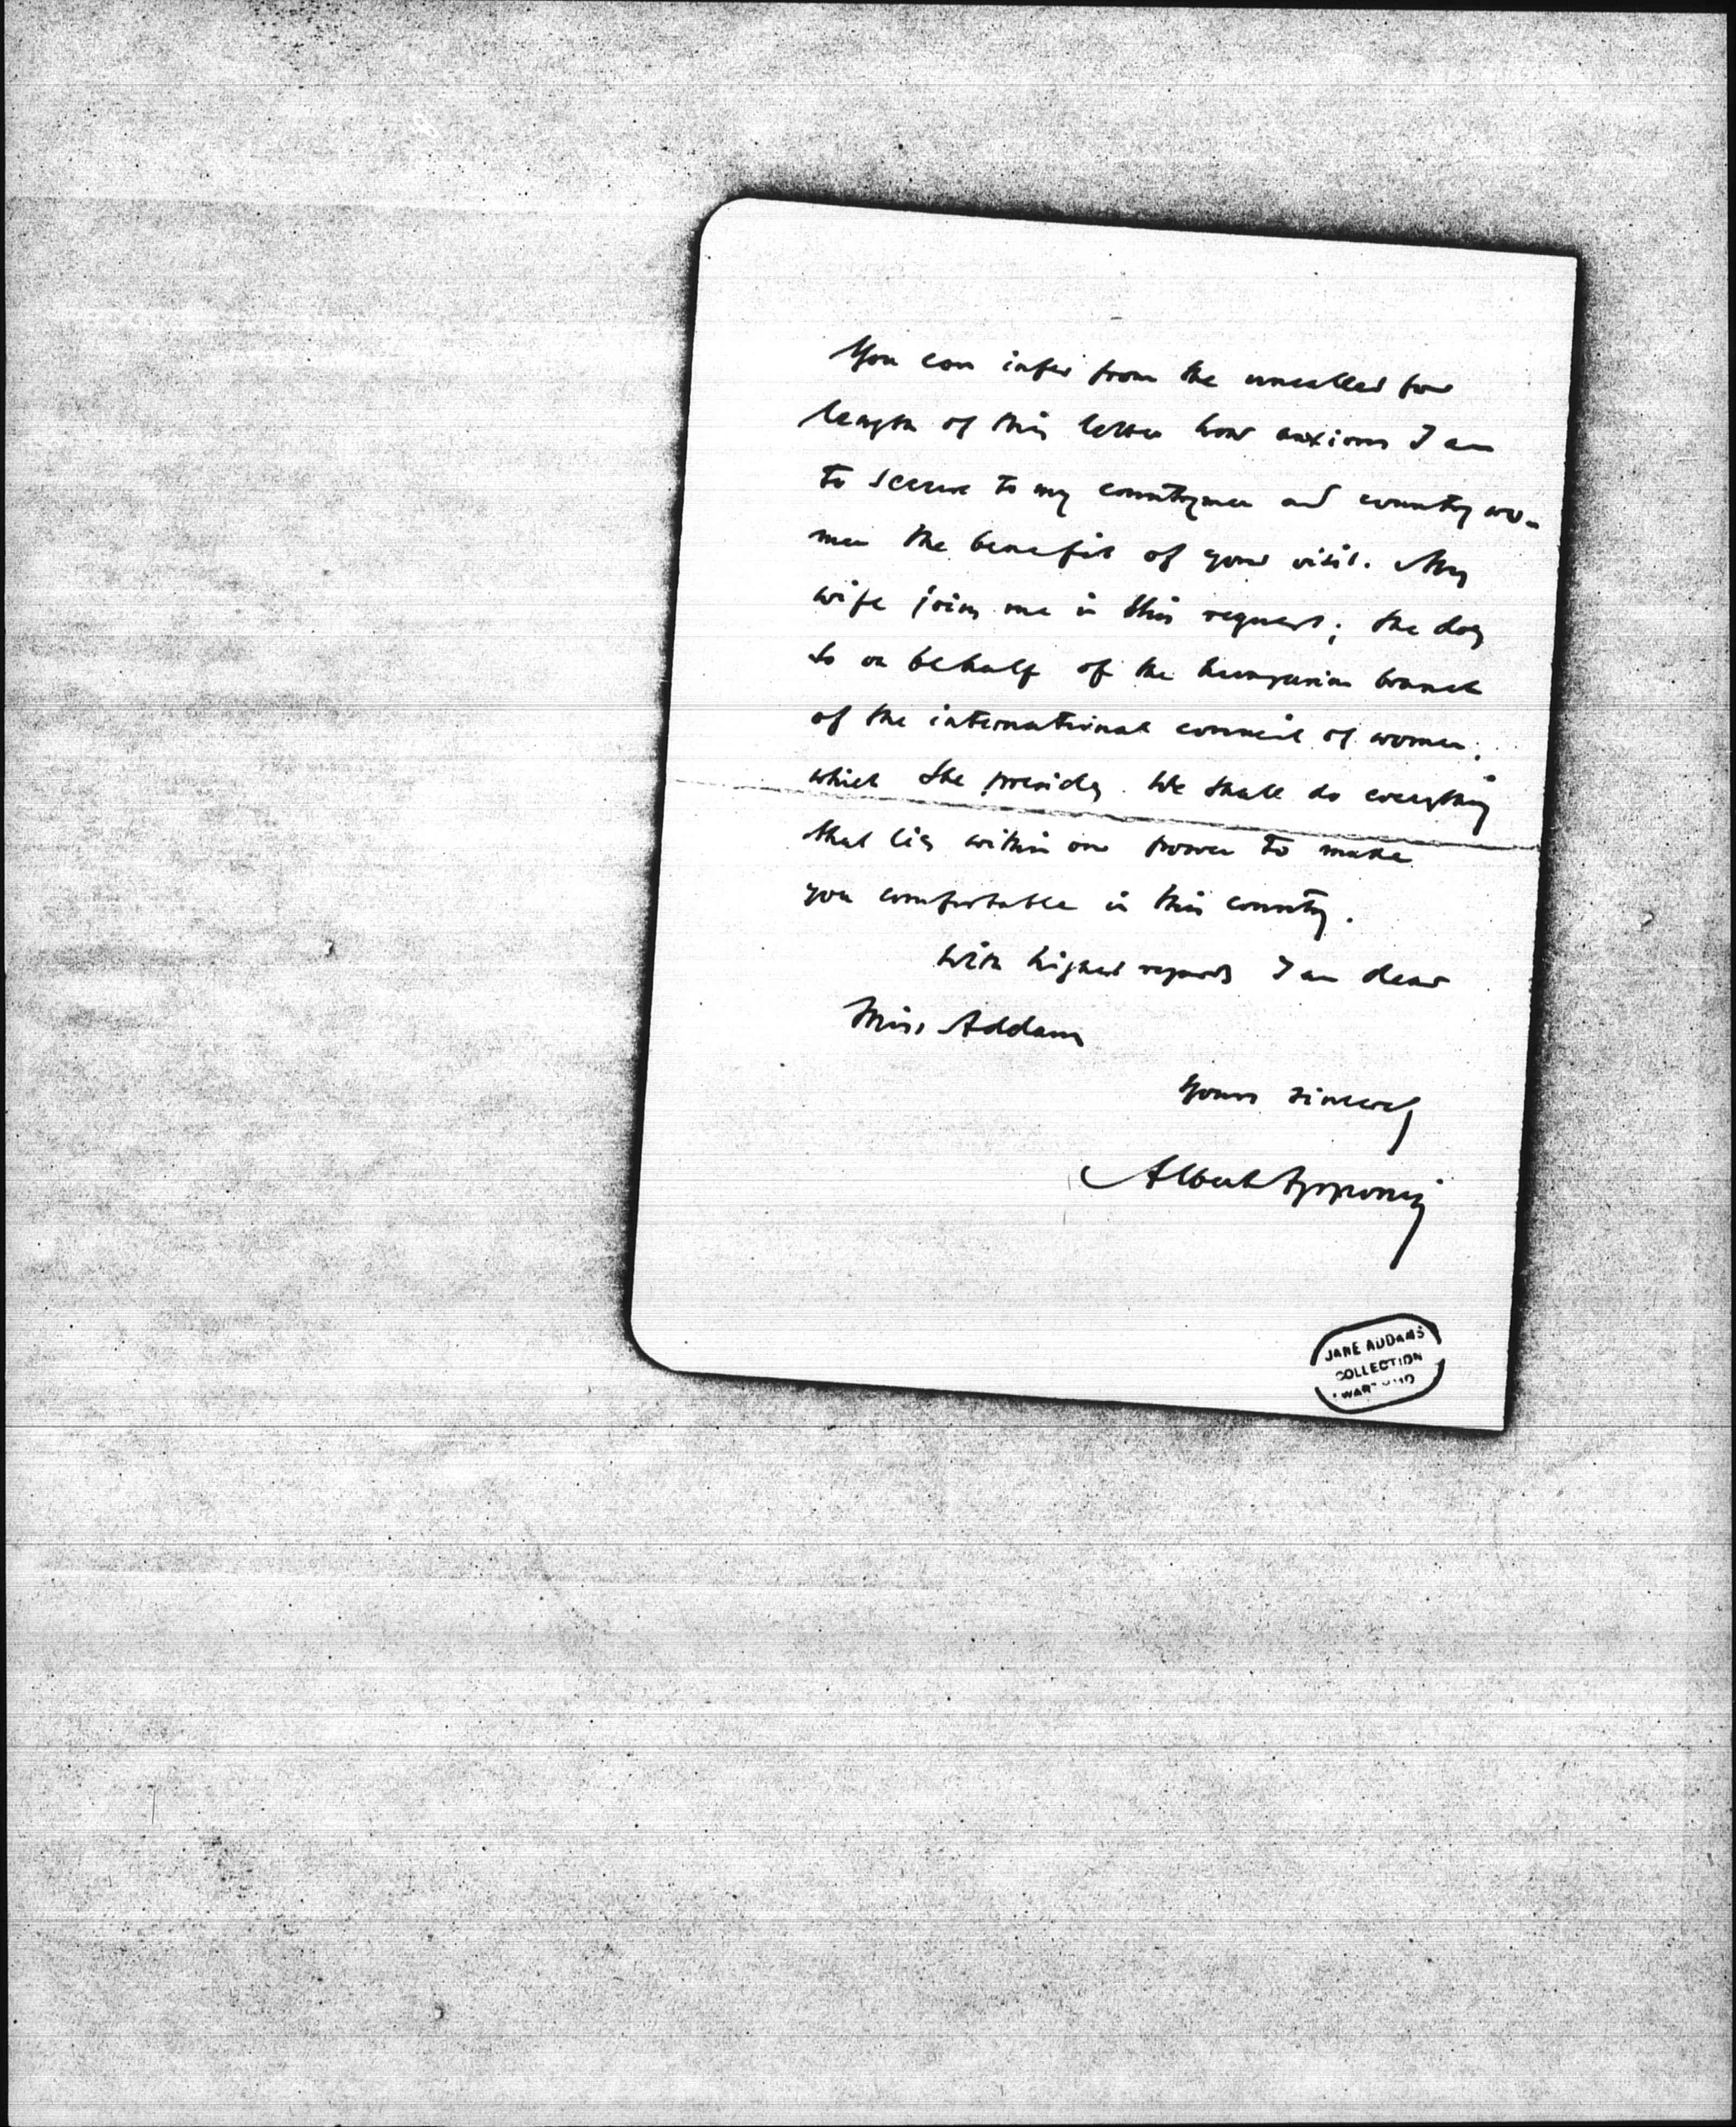 You can infer from the uncalled for
length of this letter how anxious I am
to secure to my countrymen and country wo-
men the benefit of your visit. My
wife joins me in this request; she does
so on behalf of the hungarian branch
of the international council of women
which she presides. We shall do everything
that lies within our power to make
you comfortable in this country.
With highest regards I am dear
Miss Addams
Yours sincerely
Albert Apponyi
JANE ADDAMS
COLLECTION